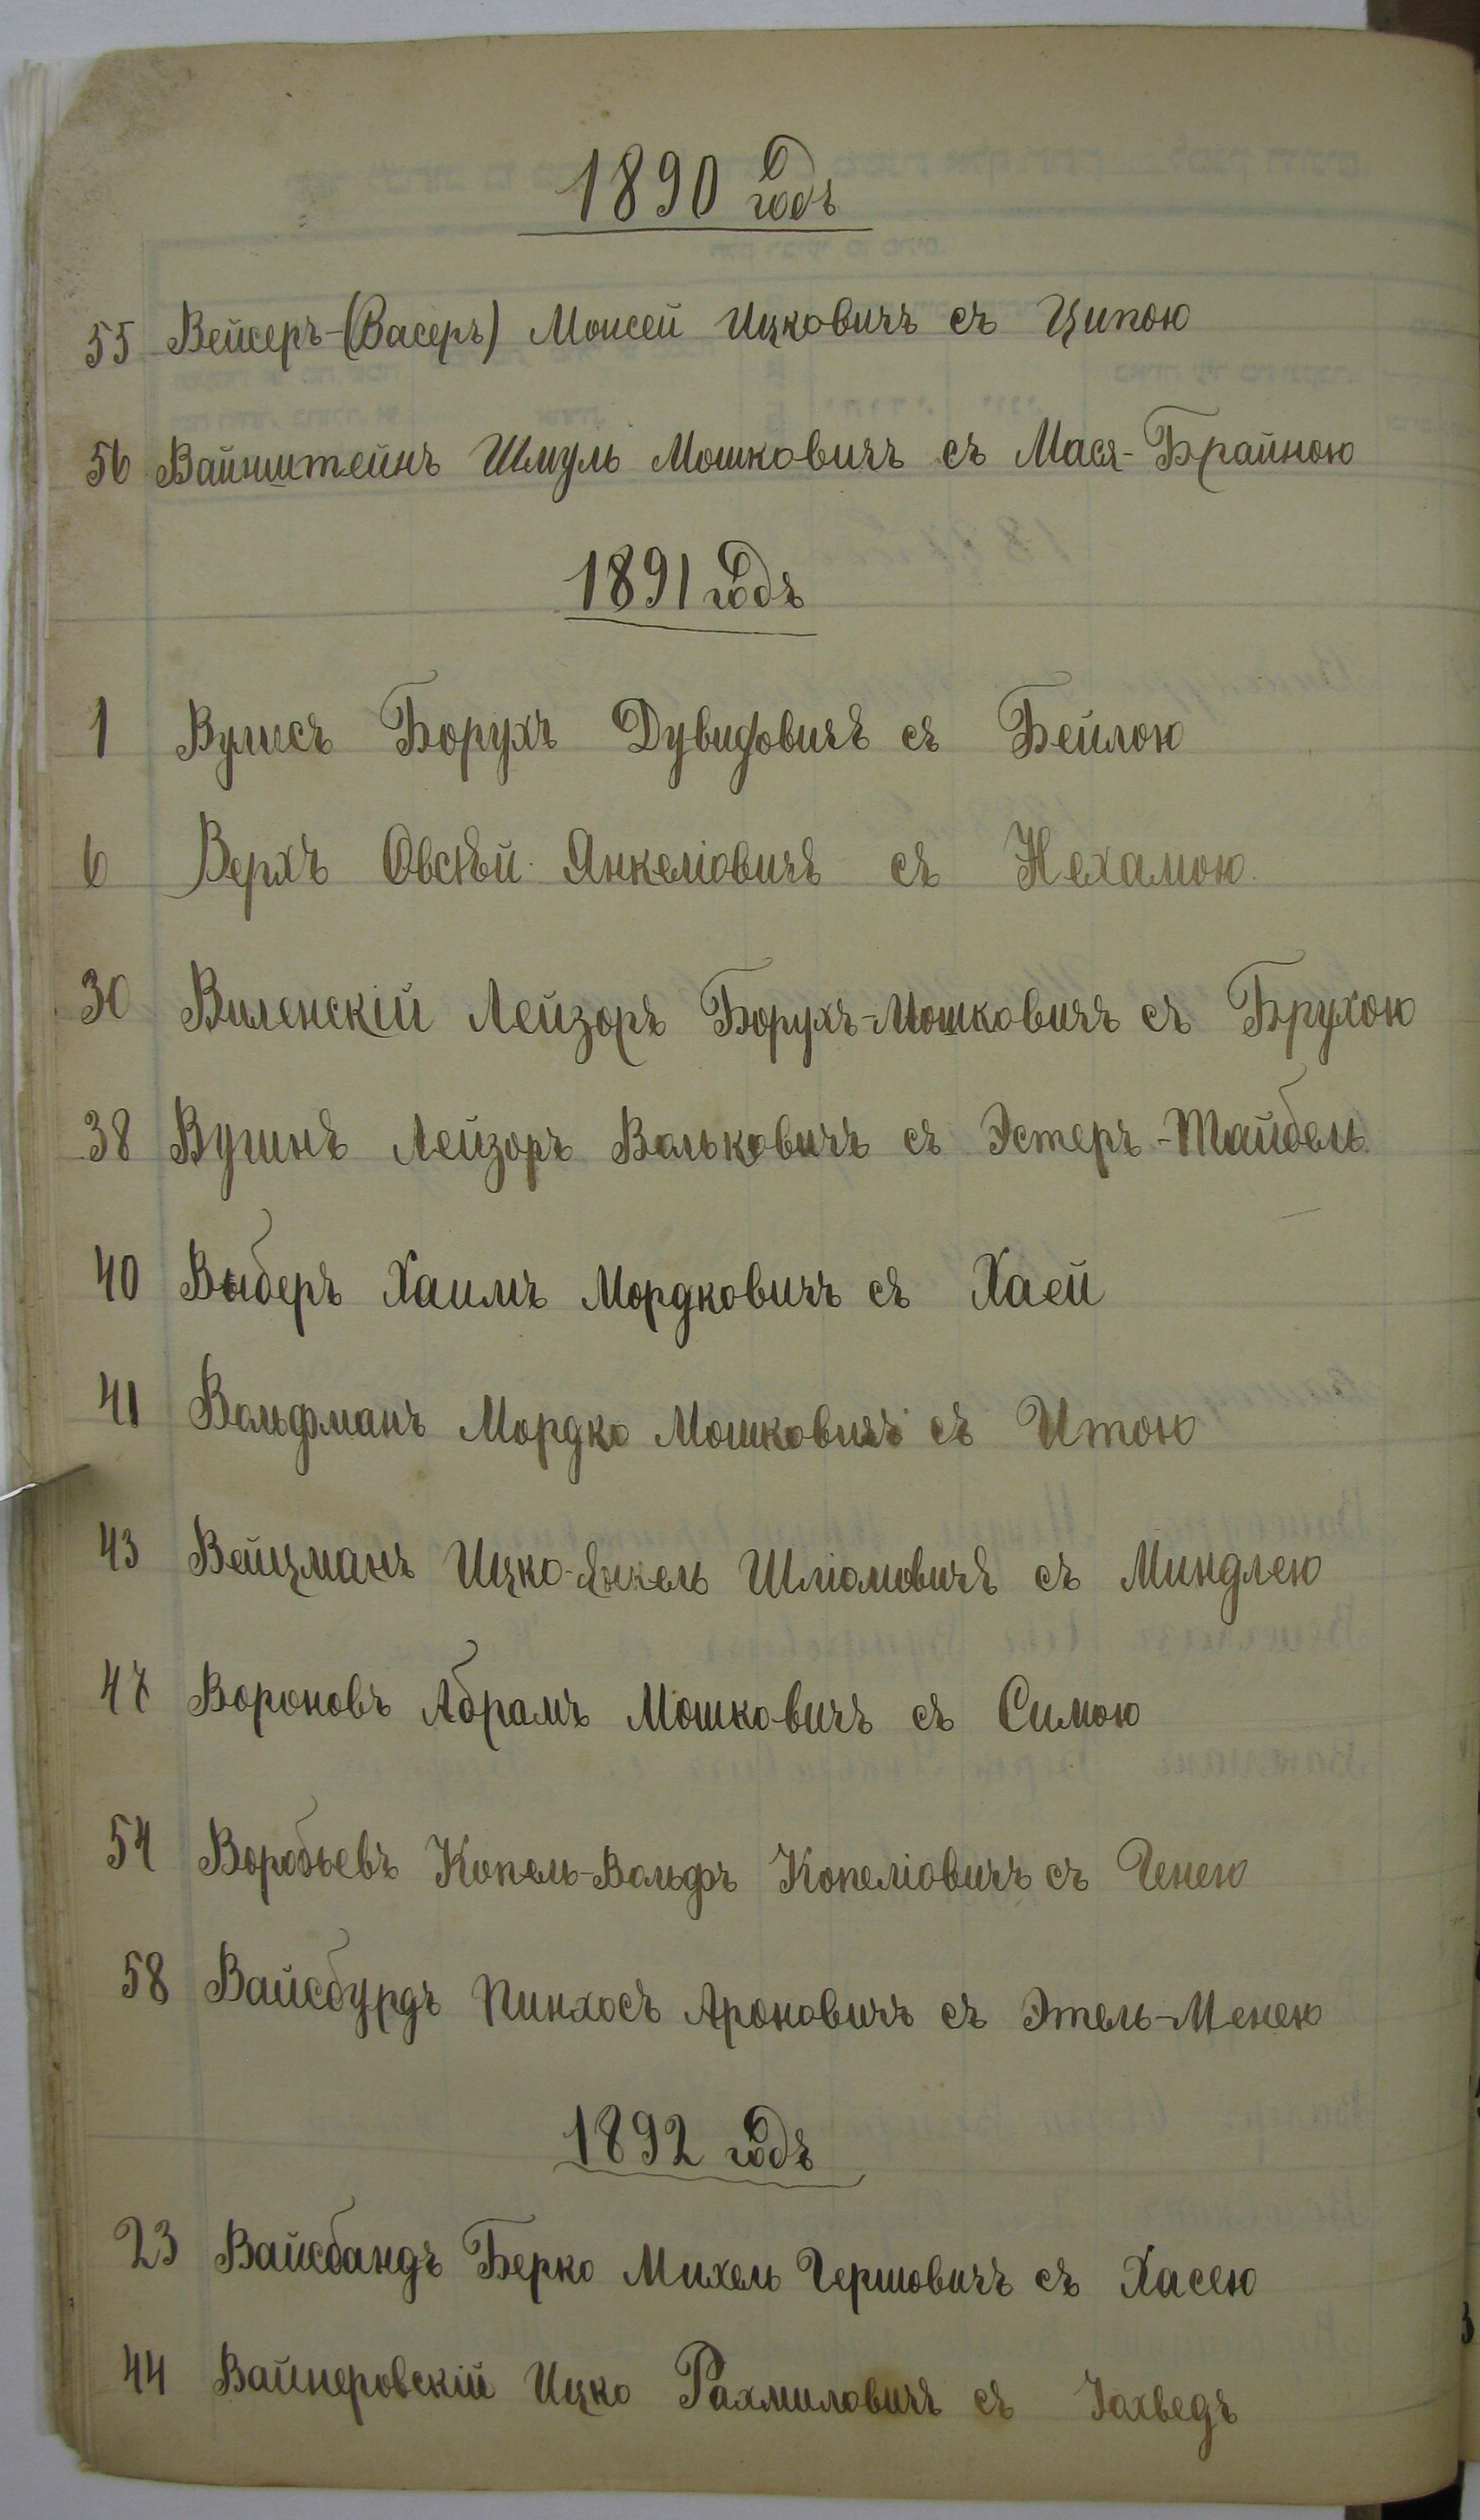 1890 годъ
55 Вейсеръ-(Васеръ) Моисей Ицковичъ съ Ципою
56 Вайнштейнъ Шмуль Мошковичъ съ Мася-Брайною
1891 годъ
1 Вулисъ Борухъ Дувидовичъ съ Бейлою
6 Верхъ Овсѣй Янкеліовичъ съ Нехамою
30 Виленскій Лейзоръ Борухъ-Мошковичъ съ Брухою
38 Вугинъ Лейзоръ Вольковичъ съ Эстеръ-Тайбель
40 Выберъ Хаимъ Мордковичъ съ Хаей
41 Вольфманъ Мордко Мошковичъ съ Итою
43 Вейцманъ Ицко-Янкель Шліомовичъ съ Миндлею
47 Вороновъ Абрамъ Мошковичъ съ Симою
54 Воробьевъ Копель-Вольфъ Копеліовичъ съ Генею
58 Вайсбурдъ Пинхосъ Ароновичъ съ Этель-Менею
1892 годъ
23 Вайсбандъ Берко Михель Гершовичъ съ Хасею
44 Вайнеровскій Ицко Рахмиловичъ съ Іохведъ